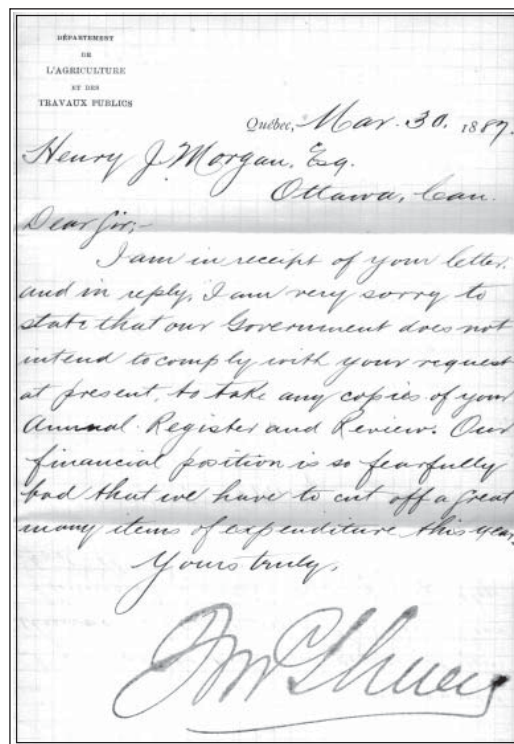 DÉPARTEMENT
DE
L'AGRICULTURE
ET DES
TRAVAUX PUBLICS
Québec, Mar. 30. 1887.
Henry J. Morgan, Esq.
Ottawa, Can.
Dear Sir;-
I am in receipt of your letter,
and in reply, I am very sorry to
state that our Government does not
intend to comply with your request
at present, to take any copies of your
Annual Register and Review. Our
financial position is so fearfully
bad that we have to cut off a great
many items of expenditure this year.
Yours truly,